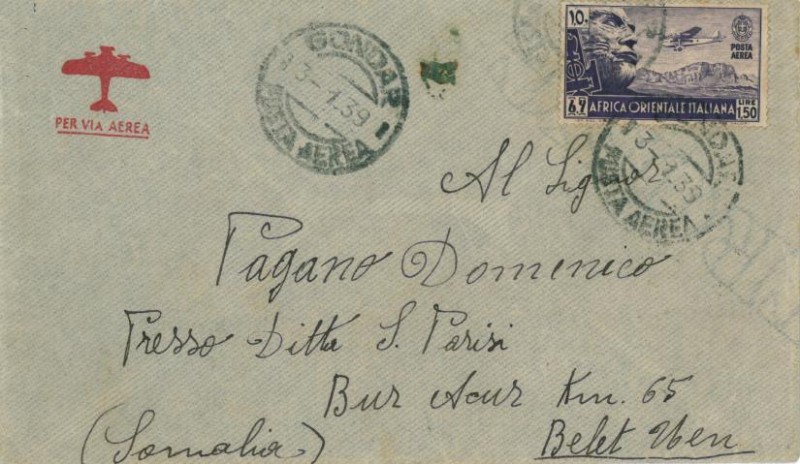 PER VIA AEREA
GONDAR
3 1 39
POSTA AEREA
1.0.
POSTA
AEREA
6.7 AFRICA ORIENTALE ITALIANA LIRE
1.50
GONDAR
3 1 39
POSTA AEREA
Al Signor
Pagano Domenico
Presso Ditta S. Parisi
Bur Acur Km. 65
(Somalia) Belet Uen